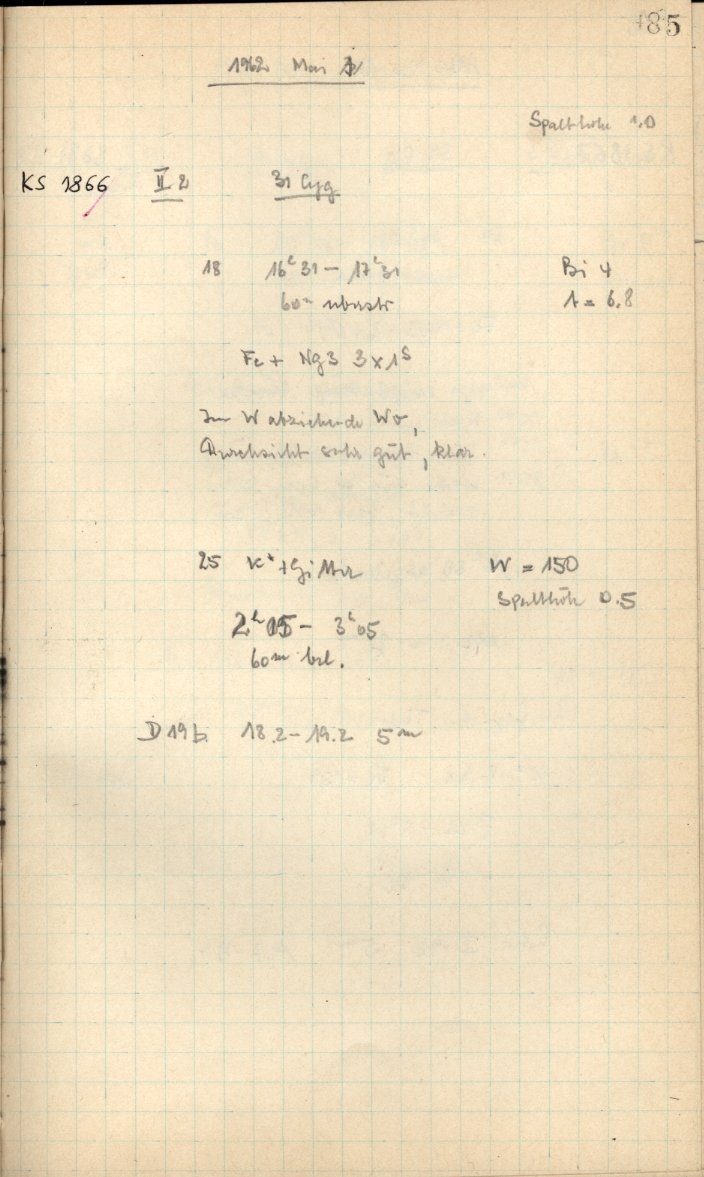 185
1962 Mai
Spalthöhe 1.0
KS 1866 II 2 31 Cyg
18 16h 31 – 17h 31 Bi 4
60m t = 6.8
Fe + Ng3 3x1s
Im W abziehende Wo,
Durchsicht sehr gut, klar.
25 K* + Gitter W = 150
Spalthöhe 0.5
2h 05 – 3h 05
60m bel.
D 19 b. 18.2 – 19.2 5m